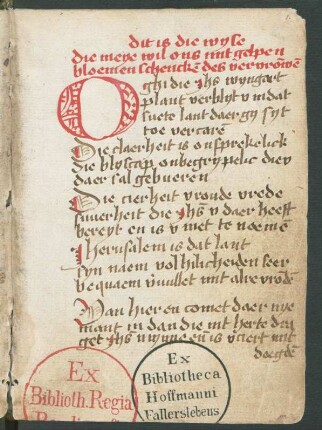 dit is die wyse
die meye wil ons mit gelen
bloemen schencke des verurowē
O ghi die Jhs wyngart
plant verblyt v in dat
suete lant daer gy syt
toe vercarē
Die claerheit is onsprekelick
Die blyscap onbegrypelic diev
daer sal gebueren
Die cierheit vroude vrede
suuerheit die Jhs v daer heeft
bereyt en is v niet te noemē
Jherusalem is dat lant
syn naem vol hilicheiden seer
bequaem veruullet mit alre vrodē
Van hier en comet daer nye
mant in dan die mit herte
get Jhs mynnen is verciert mit
doegdē
Ex
Biblioth. Regia
Ex
Bibliotheca
Hoffmanni
Fallerslebens